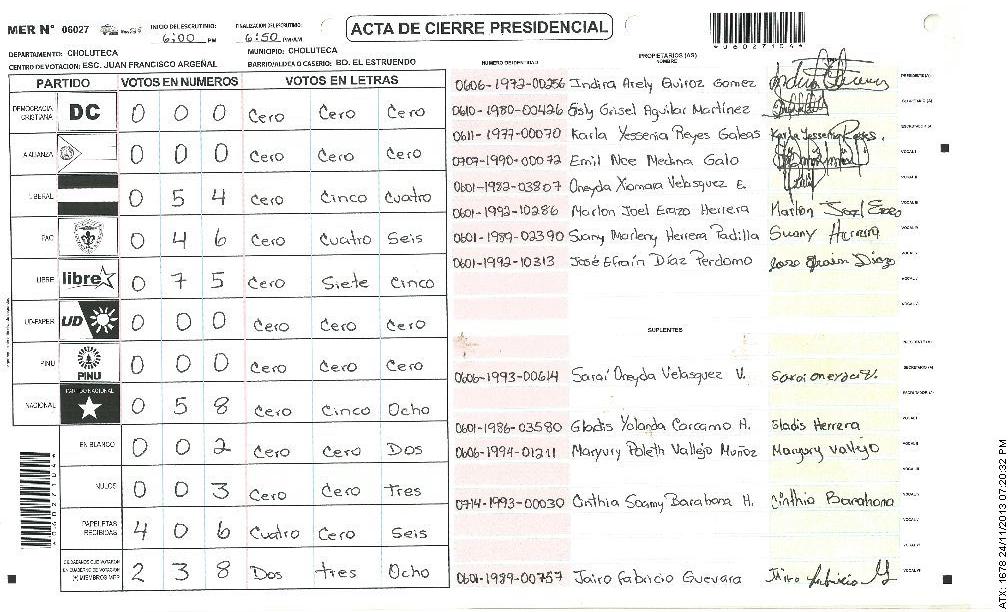 MER N° 06027
INICIO DEL ESCRUTINIO: 6:00 PM
FINALIZACION DEL ESCRUTINIO: 6:50 PM/AM
ACTA DE CIERRE PRESIDENCIAL
DEPARTAMENTO: CHOLUTECA
MUNICIPIO: CHOLUTECA
CENTRO DE VOTACION: ESC. JUAN FRANCISCO ARGEÑAL
BARRIO/ALDEA O CASERIO: BO. EL ESTRUENDO
PARTIDO VOTOS EN NUMEROS VOTOS EN LETRAS
DEMOCRACIA CRISTIANA DC 0 0 0 Cero Cero Cero
ALIANZA 0 0 0 Cero Cero Cero
LIBERAL 0 5 4 Cero Cinco Cuatro
PAC 0 4 6 Cero Cuatro Seis
LIBRE libre 0 7 5 Cero Siete Cinco
UD-FAPER UD 0 0 0 Cero Cero Cero
PINU PINU 0 0 0 Cero Cero Cero
NACIONAL PARTIDO NACIONAL 0 5 8 Cero Cinco Ocho
EN BLANCO 0 0 2 Cero Cero Dos
NULOS 0 0 3 Cero Cero Tres
PAPELETAS RECIBIDAS 4 0 6 Cuatro Cero Seis
CIUDADANOS QUE VOTARON EN CUADERNO DE VOTACION (+) MIEMBROS MER 2 3 8 Dos tres Ocho
NUMERO IDENTIDAD
PROPIETARIOS (AS)
NOMBRE
0606-1972-00256 Indira Arely Quiroz Gomez PRESIDENTE (A)
0610-1980-00426 Esly Grisel Aguilar Martínez SECRETARIO (A)
0611-1977-00070 Karla Yessenia Reyes Galeas Karla Yessenia Reyes. ESCRUTADOR (A)
0707-1990-00072 Emil Noe Medina Galo VOCAL I
0601-1982-03807 Oneyda Xiomara Velasquez E. VOCAL II
0601-1992-10286 Marlon Joel Erazo Herrera Marlon Joel Erazo VOCAL III
0601-1989-02390 Suany Marleny Herrera Padilla Suany Herrera VOCAL IV
0601-1992-10313 José Efraín Díaz Perdomo Jose Efrain Diaz VOCAL V
SUPLENTES
PRESIDENTE (A)
0606-1993-00614 Saraí Oneyda Velasquez V. SECRETARIO (A)
ESCRUTADOR (A)
0601-1986-03580 Gladis Yolanda Carcamo H. Gladis Herrera VOCAL I
0606-1994-01211 Maryury Poleth Vallejo Muñoz Maryury Vallejo VOCAL II
VOCAL III
0714-1993-00030 Cinthia Soamy Barahona H. Cinthia Barahona VOCAL IV
VOCAL V
0601-1989-00757 Jairo Fabricio Guevara Jairo Fabricio G VOCAL VI
ATX: 1678 24/11/2013 07:20:32 PM